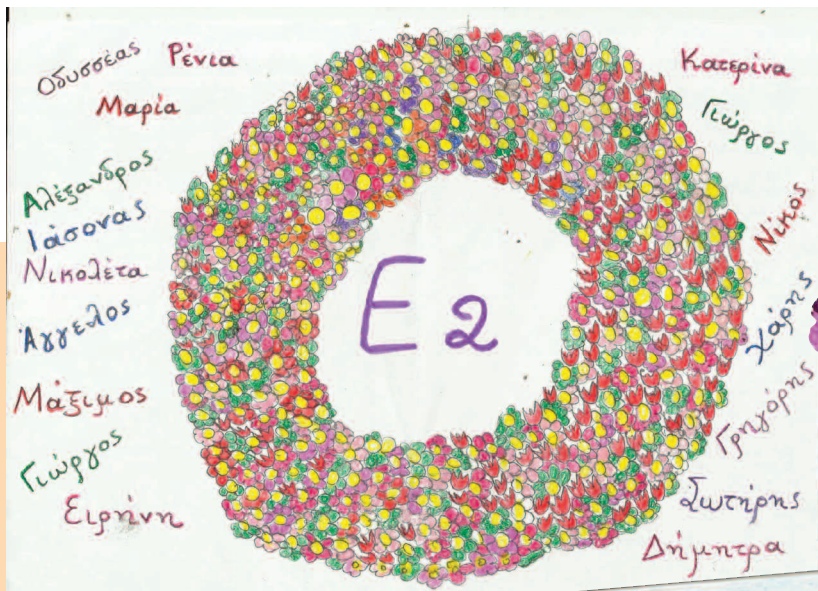 Οδυσσέας
Ρένια
Μαρία
Αλέξανδρος
Ιάσονας
Νικολέτα
Άγγελος
Μάξιμος
Γιώργος
Ειρήνη
Ε2
Κατερίνα
Γιώργος
Νίκος
Χάρης
Γρηγόρης
Σωτήρης
Δήμητρα